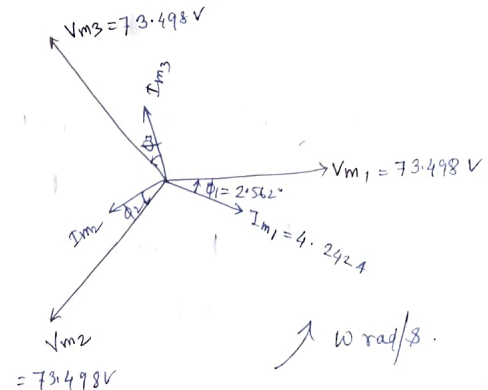 Vm3 = 73.498 V
Im3
ϕ3
Vm1 = 73.498 V
ϕ1 = 2.562°
Im1 = 4.242 A
Im2
ϕ2
Vm2
= 73.498 V
ω rad/s.